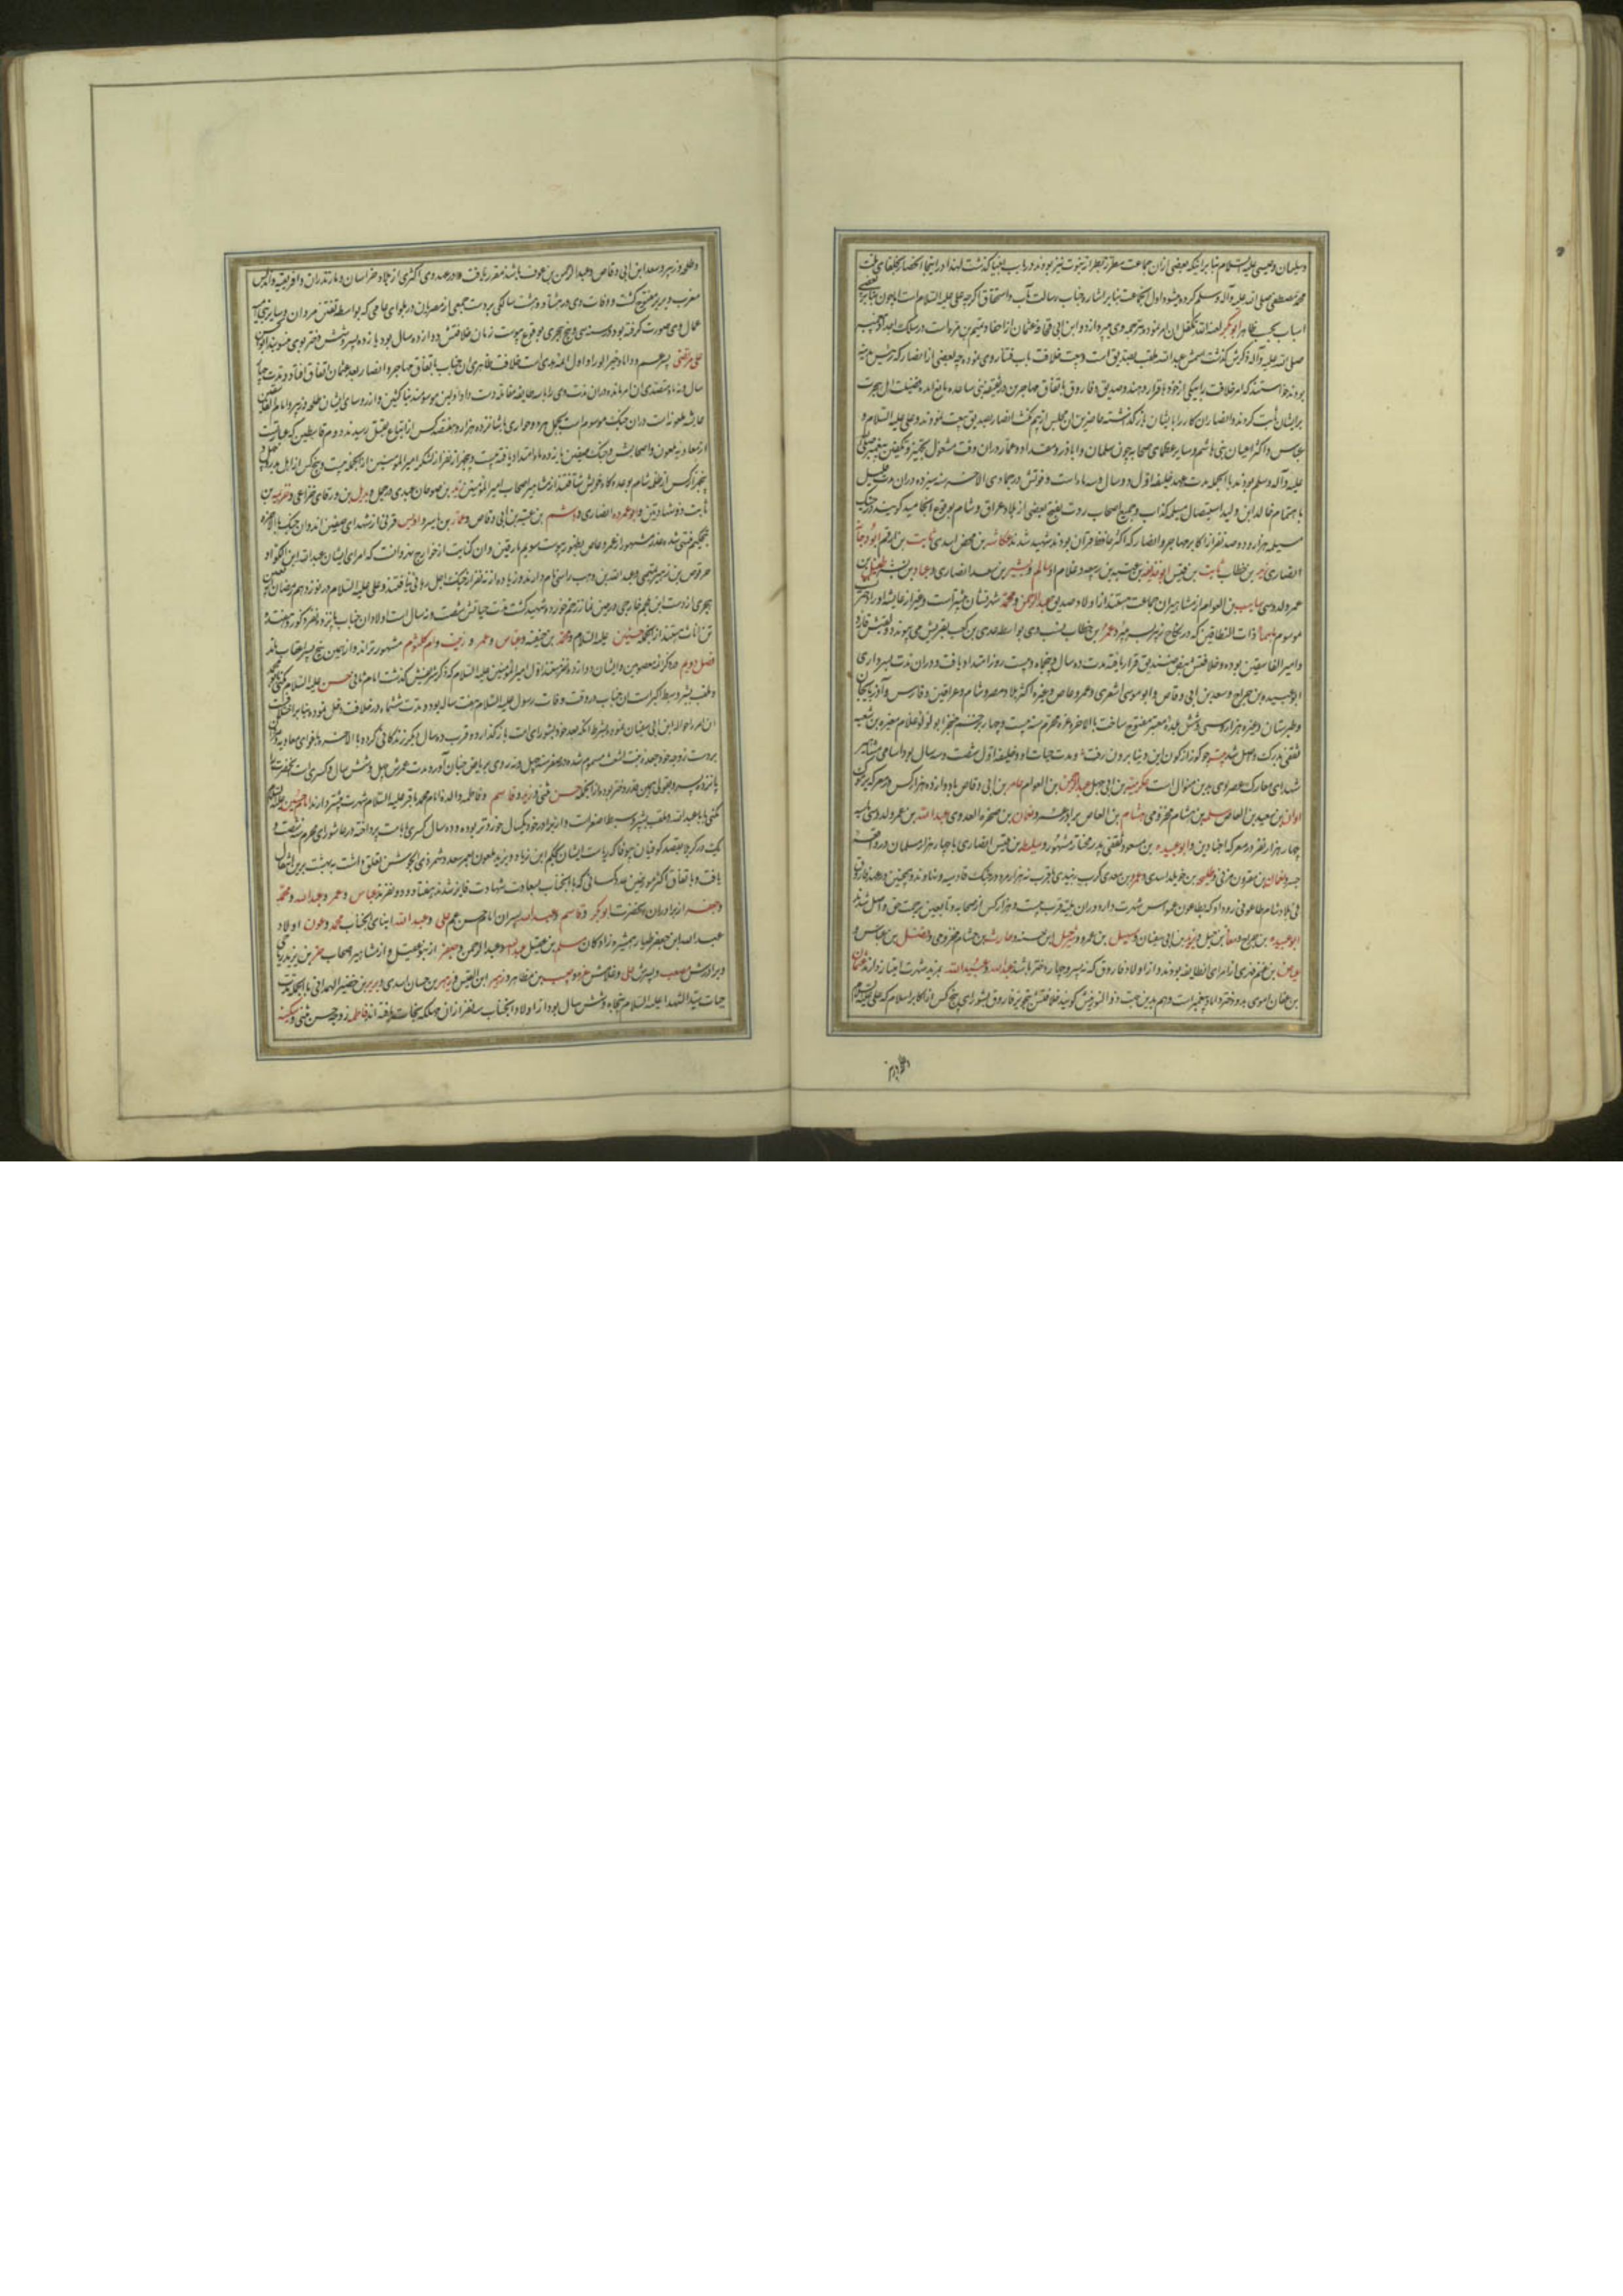 وسلیمان وعیسی علیه السلام بنا برانیکه بعضی ازان جماعت نیز بودند در لهذا در اینجا
محمد مصطفی صلی الله علیه وآله وسلم کرده میشود اول جماعت بنابر اشاره جناب رسالت مآب واستحقاق اگرچه علی علیه السلام است اما چون بنابر بعضی
اسباب بحسب ظاهر ابوبکر متکفل ان امر نموده بترجمه وی میپردازد وابن ابی قحافه عثمان از احفاد تیم بن مره است در سلک اجداد پیغمبر
صلی الله علیه وآله ذکرش گذشت اسمش عبدالله ملقب بصدیق است وجهت خلافت باب وی نموده چه بعضی از انصار که رئیس
بودند خواستند که امر خلافت را بیکی از خود قرار دهند وصدیق وفاروق باتفاق مهاجرین در سقیفه بنی ساعده
برایشان ثابت کردند وانصار ان کار را بایشان باز گذاشته حاضرین ان مجلس انصار بصدیق بیعت نمودند وعلی علیه السلام و
عباس واکثر اعیان بنی هاشم وسایر عظمای صحابه چون سلمان واباذر ومقداد وعمار دران وقت مشغول تجهیز وتکفین پیغمبر صلی
علیه وآله وسلم بودند بالجمله مدت خلیفه اول دو سال وسه ماه است وفوتش در جمادی الاخر سنه سیزده دران مدت قلیل
باهتمام خالد ابن ولید استیصال مسیلمه کذاب وجمیع اصحاب ردت بعضی از بلاد عراق وشام بوقوع انجامید گویند در جنگ
مسیلمه هزار ودوصد نفر از اکابر مهاجر وانصار که اکثر حافظ قرآن بودند شهید شدند عکاشه بن محصن اسدی ثابت بن ارقم ابودجانه
انصاری زید بن خطاب ثابت بن قیس ابوحذیفه بن عتبه بن ربیعه وغلام او سالم وبشیر بن سعد انصاری وعباد بن بشر طفیل بن
عمرو الدوسی سایب بن العوام از مشاهیر ان جماعت هستند از اولاد صدیق عبدالرحمن ومحمد شهرتشان بیشتر است وغیر از عایشه او را دختر
موسوم باسما ذات النطاقین که در نکاح زبیر بسر میبرد وعمر بن خطاب نسب وی بواسطه عدی بن کعب بقریش می پیوندد ولقبش فاروق
وامیر الفاسقین بوده وخلافتش قرار یافته مدت ده سال وپنجاه وبیست روز امتداد یافت ودران مدت بسرداری
ابوعبیده بن جراح وسعد بن ابی وقاص وابوموسی اشعری وعمرو عاص وغیره اکثر بلاد مصر وشام وعراقین وفارس وآذربایجان
وطبرستان وغیره مفتوح ساخت بالاخره غره محرم سنه بیست وچهار بزخم خنجر ابولولو غلام مغیره بن شعبه
ثقفی بدرک واصل شد از کون این دنیا برون رفت ومدت حیات او وخلیفه اول شصت وسه سال بود اسامی مشاهیر
شهدای معارک عصر وی بدین منوال است عکرمه بن ابی جهل عبدالرحمن بن العوام عامر بن ابی وقاص با دوازده هزار کس در معرکه یرموک
ابان بن سعید بن العاص سلمه بن هشام مخزومی هشام بن العاص برادر عمرو ونعمان بن صخره العدوی عبدالله بن عمرو الدوسی
چهار هزار نفر در معرکه اجنادین وابوعبیده بن مسعود ثقفی پدر مختار مشهور وسلیط بن قیس انصاری با چهار هزار مسلمان در واقعه
جسر ونعمان بن مقرون مزنی وطلیحه بن خویلد اسدی وعمرو بن معدی کرب زبیدی در جنگ قادسیه ونهاوند
در بلاد شام طاعونی روداد که بطاعون عمواس شهرت دارد دران بلیه قرب بیست وهزار کس از صحابه وتابعین برحمت حق واصل شدند
ابوعبیده بن جراح ومعاذ بن جبل ویزید بن ابی سفیان وسهیل بن عمرو وشرحبیل ابن حسنه وحارث بن هشام مخزومی وفضل بن عباس و
عیاض بن غنم فهری از امرای انطایفه بودند واز اولاد فاروق که نه پسر وچهار دختر باشند عبدالله وعبیدالله بمزید شهرت امتیاز دارند عثمان
بن عفان اموی بدو دختر داماد پیغمبر است ودهم بدین جهت ذوالنورینش گویند خلافتش بتجویز فاروق بشورای پنج کس از اکابر اسلام که علی علیه السلام
وطلحه
وطلحه وزبیر وسعد ابن ابی وقاص وعبدالرحمن بن عوف باشند مقرر یافت ودر عهد وی اکثری از بلاد خراسان ومازندران وافریقیه واندلس
مغرب وبربر مفتوح گشت ووفات وی در هشتاد وهشت سالگی بر دست جمعی از مصریان در بلوای عامی که بواسطه تفتن مروان وسایر بنی امیه
عمال وی صورت گرفته بود در سنه سی وپنج هجری بوقوع پیوست زمان خلافتش دوازده سال بود یازده پسر وشش دختر بوی منسوبند ابوالحسن
علی مرتضی پسر عم وداماد خیر الورا واول ائمه هدی است خلافت ظاهری ان جناب باتفاق مهاجر وانصار بعد عثمان اتفاق افتاد ومدت چهار
سال ونه ماه متصدی ان امر مانده دران مدت وی را با سه طایفه مقاتله دست داد اولین موسومند بناکثین واز روسای ایشان طلحه وزبیر واما
عایشه ملعونه است وان جنگ موسوم است بجمل هر دو حواری با شانزده هزار وهفتصد کس از اتباع بقتل رسیدند دوم قاسطین که عبارتست
از معاویه ملعون واصحابش وجنگ صفین یازده ماه امتداد یافته بیست وپنجهزار نفر از لشکر امیرالمومنین از انجمله بیست وپنج کس از اهل بدر
پنجهزار کس از ظلمه شام بوعده گاه خویش شتافتند از مشاهیر اصحاب امیرالمومنین زید بن صوحان عبدی در جمل وبدیل بن ورقای خزاعی وخزیمه بن
ثابت ذوشهادتین وابوعمره انصاری وهاشم بن عتبه بن ابی وقاص وعمار بن یاسر واویس قرنی از شهدای صفین اند وان جنگ بالاخره
بتحکیم منتهی شده غدر مشهور از عمرو عاص بظهور پیوست سویم مارقین وان کنایت از خوارج نهروانست که امرای ایشان عبدالله ابن الکوا و
حرقوص بن زهیر تمیمی وعبدالله بن وهب راسبی نام دارند وزیاده از نه نفر از چنگ اجل رهائی نیافتند وعلی علیه السلام در نوزدهم رمضان سنه اربعین
هجری از دست ابن ملجم خارجی در عین نماز زخم خورده شهید گشت مدت حیاتش شصت وسه سال است اولاد ان جناب پانزده نفر ذکور وهفده
تن اناث هستند از انجمله حسنین علیه السلام ومحمد بن حنیفه وعباس وعمر و زینب وام کلثوم مشهورتراند وازهمین پنج پسر اعقاب ماند
فصل دویم در ذکر ائمه معصومین وایشان دوازده نفر هستند اول امیرالمومنین علیه السلام که ذکر خیرش گذشت امام ثانی حسن علیه السلام کنیتش ابومحمد
ولقب بشبر وسبط اکبر است ان جناب در وقت وفات رسول علیه السلام هفت ساله بود ومدت ششماه در خلافت دخل نموده بنابر اختلاف
ان امر را حواله ابن ابی سفیان نموده بشرط انکه بعد خود بشورای امت باز گذارد وقرب ده سال دیگر زندگانی کرده بالاخره باغوای معاویه ملعون
بر دست زوجه خود جعده بنت اشعث مسموم شده در صفر سنه چهل ونه روی بریاض جنان آورد مدت عمرش چهل وشش سال وکسری است انحضرت را
پانزده پسر وبقولی همین قدر دختر بوده از انجمله حسن مثنی وزید وقاسم وفاطمه والده امام محمد باقر علیه السلام شهرت بیشتر دارند امام حسین علیه السلام
مکنی بابا عبدالله وملقب بشبیر وسبط اصغر است وازبرادر خود یکسال خوردتر بوده ده سال کسری بامامت پرداخته در عاشورای محرم سنه شصت و
یک در کربلا بقصد کوفیان بیوفا که ریاست ایشان بحکم ابن زیاد ویزید ملعون بعمر سعد وشمر ذی الجوشن تعلق داشت به بهشت برین انتقال
یافت وباتفاق اکثر مورخین عدد کسانی که با انجناب بسعادت شهادت فایز شدند هفتاد ودو نفرند عباس وعمر وعبدالله ومحمد
وجعفر از برادران انحضرت ابوبکر وقاسم وعبدالله پسران امام حسن عم علی وعبدالله ابنای انجناب محمد وعون اولاد
عبدالله ابن جعفر طیار همشیره زادگان مسلم بن عقیل عبدالله وعبدالرحمن وجعفر از بنو عقیل واز مشاهیر اصحاب حر بن یزید ریاحی
وبرادرش مصعب وپسرش علی وغلامش عزه وحبیب بن مظاهر وزهیر ابن القین وزهیر بن حسان اسدی وبریر بن خضیر الهمدانی بالجمله مدت
حیات سید الشهدا علیه السلام پنجاه وشش سال بود از اولاد انجناب سه نفر ازان مهلکه نجات یافته اند فاطمه زوجه حسن مثنی وسکینه